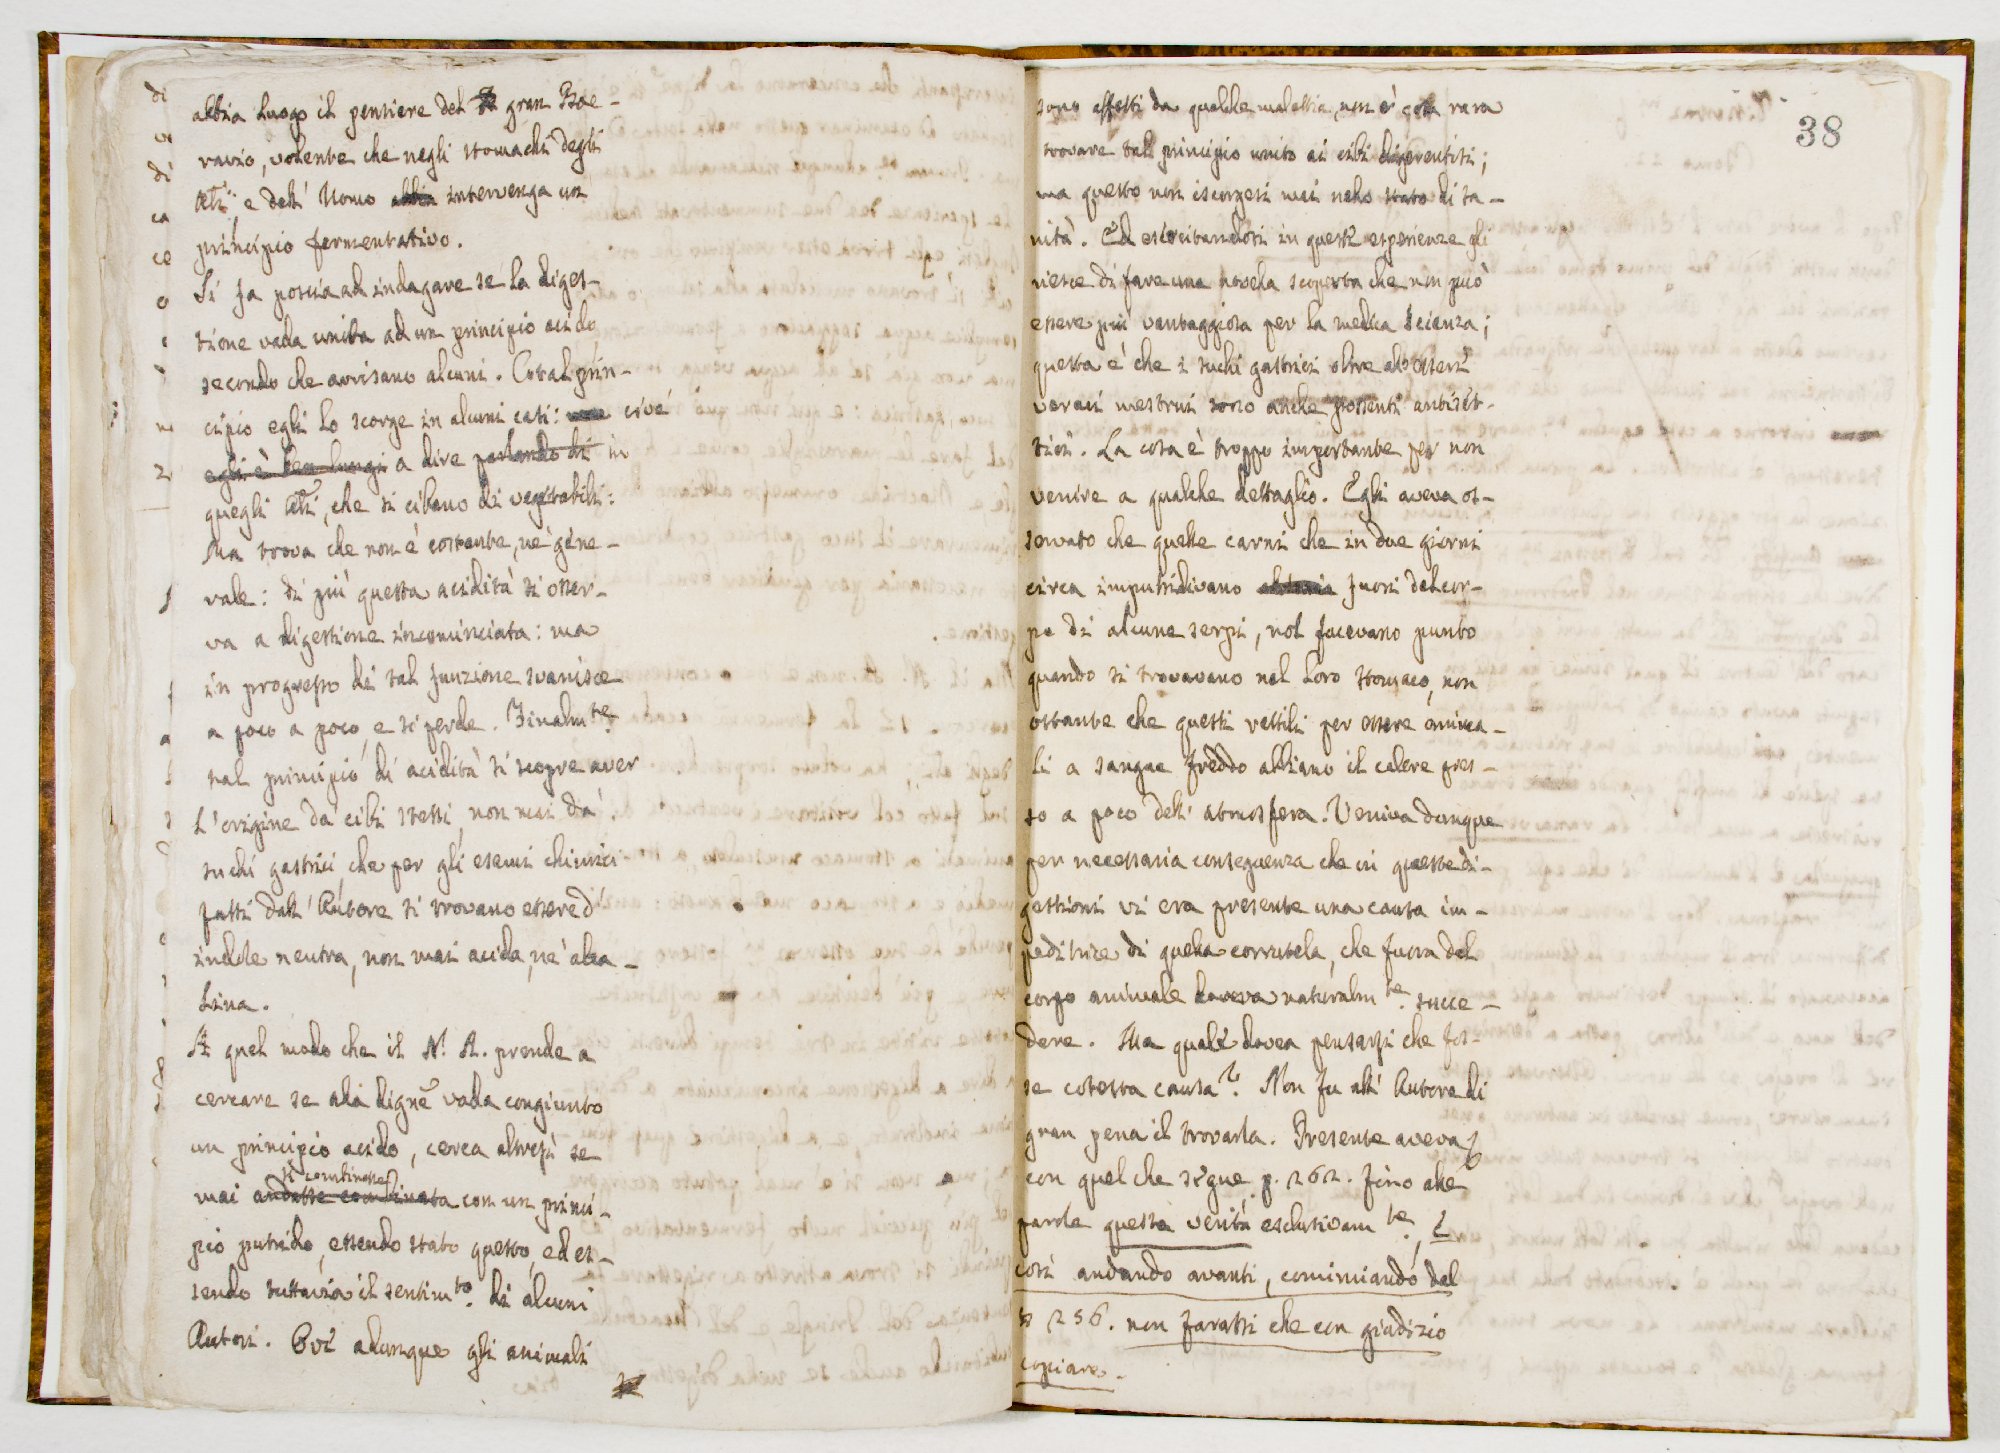 abbia luogo il pensiere del gran Boe-
ravio, volente che negli stomachi degli
altri, e dell' Uomo abbia intervenga un
principio fermentativo.
Si fa poscia ad indagare se la diges-
tione vada unita ad un principio acido
secondo che avvisano alcuni. Cotal prin-
cipio egli lo scorge in alcuni casi: cioè
egli è ben lungi a dire parlando di in
quegli altri, che si cibano di vegetabili:
Ma trova che non è costante, nè gene-
rale: di più questa acidità si osser-
va a digestione incominciata: ma
in progresso di tal funzione svanisce
a poco a poco, e si perde. Finalmte
tal principio di acidità si scopre aver
l'origine da' cibi stessi, non mai da'
suchi gastrici, che per gli esami chimici
fatti dall' Autore si trovano essere d'
indole neutra, non mai acida, nè alca-
lina.
A quel modo che il N. A. prende a
cercare se alla digne vada congiunto
un principio acido, cerca altresì se
si combinasse
mai andasse combinata con un princi-
pio putrido, essendo stato questo, ed es-
sendo tuttavia il sentimto. di alcuni
Autori. Ove adunque gli animali
38
sono affetti da qualche malattia, non è cosa rara
trovare tal principio unito ai cibi digerentisi;
ma questo non iscorgesi mai nello stato di sa-
nità. Ed esercitandosi in queste esperienze gli
riesce di fare una novella scoperta che non può
essere più vantaggiosa per la medica scienza;
questa è che i suchi gastrici oltre all'essere
veraci mestrui sono anche possenti antiset-
tici. La cosa è troppo importante per non
venire a qualche dettaglio. Egli aveva os-
servato che quelle carni che in due giorni
circa imputridivano fuori del cor-
po di alcune serpi, nol facevano punto
quando si trovavano nel loro stomaco, non
ostante che questi rettili per essere anima-
li a sangue freddo abbiano il calore pres-
so a poco dell' atmosfera. Veniva dunque
per necessaria conseguenza che in queste di-
gestioni vi era presente una causa im-
peditrice di quella corrutela, che fuora del
corpo animale doveva naturalmte. succe-
dere. Ma quale dovea pensarsi che fos-
se cotesta causa? Non fu all' Autore di
gran pena il trovarla. Presente aveva
con quel che sigue p. 262. fino alle
parole questa verità esclusivamte. E
così andando avanti, cominciando dal
256. non farassi che con giudizio
copiare.